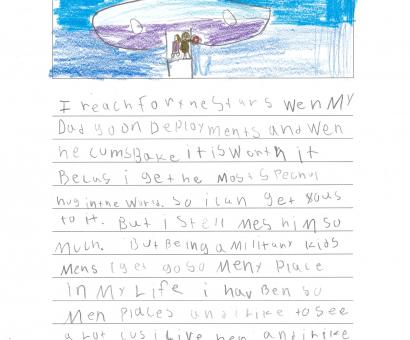 I reach for the Stars wen MY
Dad go on Deployments and wen
he cums Bake it is Worth it
Becus i get the Most Spechul
hug in the World. So i can get yous
to it. But i Stell Mes him so
Much. But Being a Military Kids
Mens I get go So Meny Place
in My Life i hav Ben so
Men Places and i like to See
a lot cus i Live her and i like